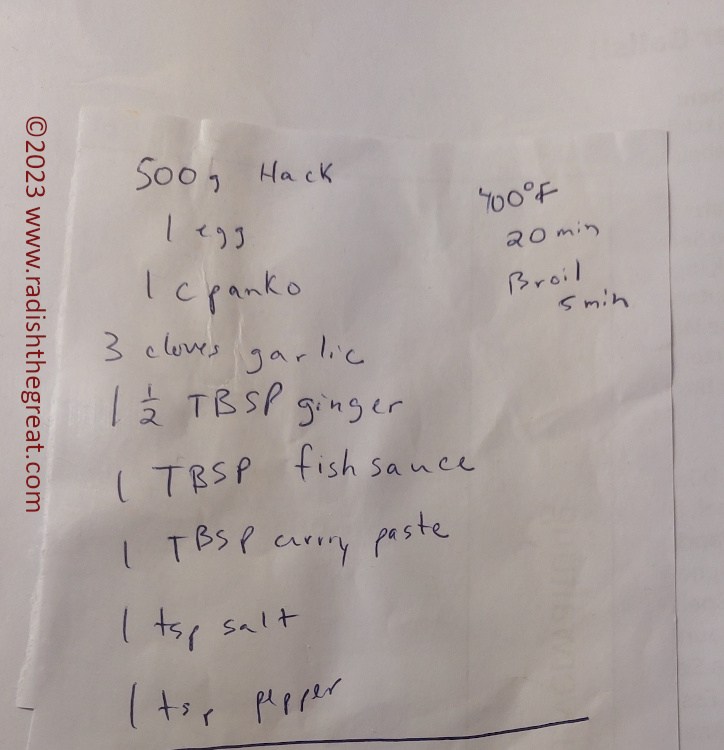 500g Hack
1 egg
1 c panko
3 cloves garlic
1 1/2 TBSP ginger
1 TBSP fish sauce
1 TBSP curry paste
1 tsp salt
1 tsp pepper
400°F
20 min
Broil
5 min
©2023 www.radishthegreat.com